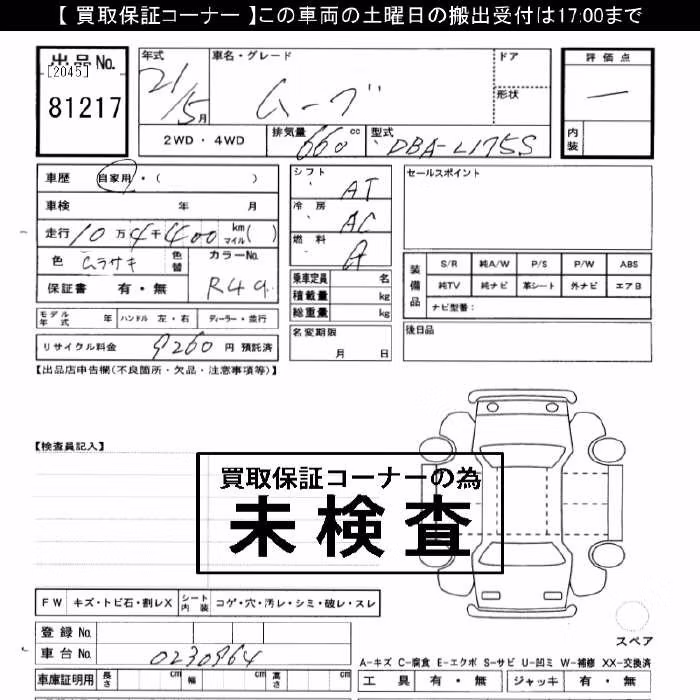 【 買取保証コーナー 】この車両の土曜日の搬出受付は17:00まで
出品No.
[2045]
81217
年式 21/5月
車名・グレード ムーブ
ドア
形状
評価点 —
内装
2WD・4WD 排気量 660 cc 型式 DBA-L175S
車歴 自家用・( )
車検 年 月
走行 10万4千400 km マイル( )
色 ムラサキ 色替 カラーNo. R49
保証書 有・無
シフト AT
冷房 AC
燃料 G
乗車定員 名
積載量 kg
総重量 kg
セールスポイント
装備品 S/R 純A/W P/S P/W ABS
純TV 純ナビ 革シート 外ナビ エアB
ナビ型番：
モデル年式 年 ハンドル 左・右 ディーラー・並行
名変期限 月 日
後日品
リサイクル料金 9260 円 預託済
【出品店申告欄(不良箇所・欠品・注意事項等)】
【検査員記入】
買取保証コーナーの為
未検査
FW キズ・トビ石・割レX シート内装 コゲ・穴・汚レ・シミ・破レ・スレ
スペア
登録No.
車台No. 0230964
A-キズ C-腐食 E-エクボ S-サビ U-凹ミ W-補修 XX-交換済
車庫証明用 長さ cm 幅 cm 高さ cm
工具 有・無 ジャッキ 有・無